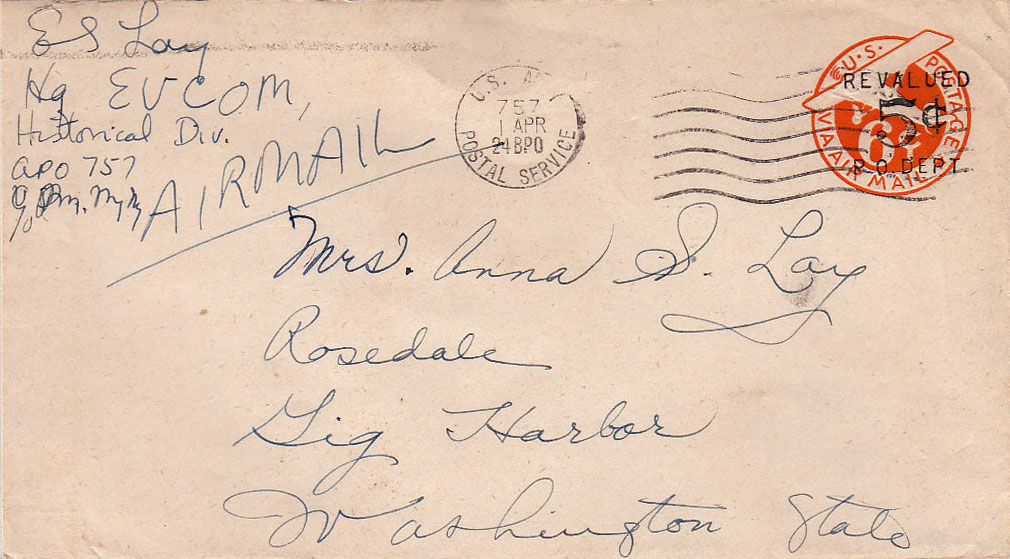 ES Lay
Hq EUCOM,
Historical Div.
APO 757
c/o P.M. N.Y.
AIRMAIL
U.S. A
757
1 APR
24 BPO
POSTAL SERVICE
U.S. POSTAGE
REVALUED
5¢
6¢
P.O. DEPT.
VIA AIR MAIL
Mrs. Anna S. Lay
Rosedale
Gig Harbor
Washington State